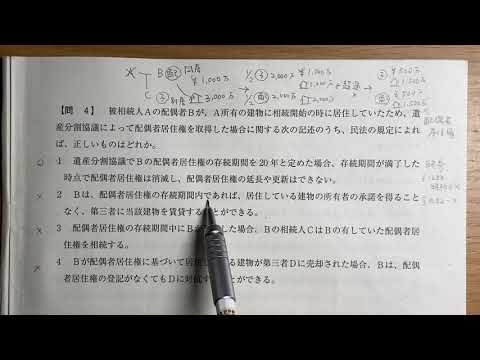 B 配 同居
¥1,000万
1/2 子 2,000万
¥500万
1,500万
1/2 配 2,000万
C 子 別居
3,000万
¥500万
1,500万
【問 4】 被相続人Aの配偶者Bが、A所有の建物に相続開始の時に居住していたため、遺
産分割協議によって配偶者居住権を取得した場合に関する次の記述のうち、民法の規定によれ
ば、正しいものはどれか。
○ 1 遺産分割協議でBの配偶者居住権の存続期間を20年と定めた場合、存続期間が満了した
時点で配偶者居住権は消滅し、配偶者居住権の延長や更新はできない。
× 2 Bは、配偶者居住権の存続期間内であれば、居住している建物の所有者の承諾を得ること
なく、第三者に当該建物を賃貸することができる。
× 3 配偶者居住権の存続期間中にBが した場合、Bの相続人CはBの有していた配偶者居
住権を相続する。
× 4 Bが配偶者居住権に基づいて居住 る建物が第三者Dに売却された場合、Bは、配偶
者居住権の登記がなくてもDに対抗す ことができる。